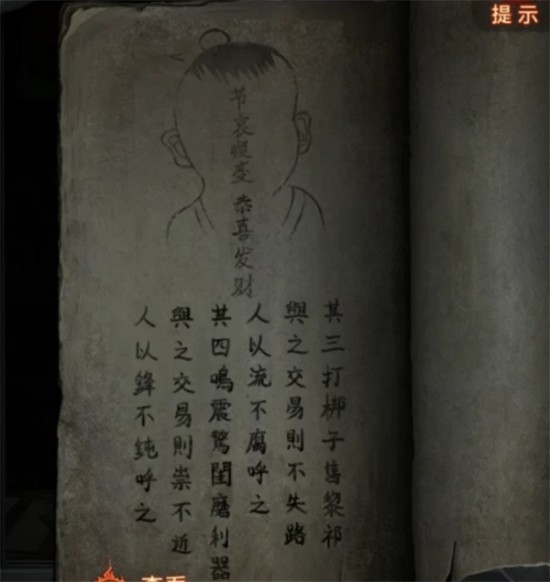 提示
节哀顺变 恭喜发财
其三打梆子售黎祁
與之交易則不失路
人以流不腐呼之
其四鳴震驚閨磨利器
與之交易則祟不近
人以鋒不鈍呼之